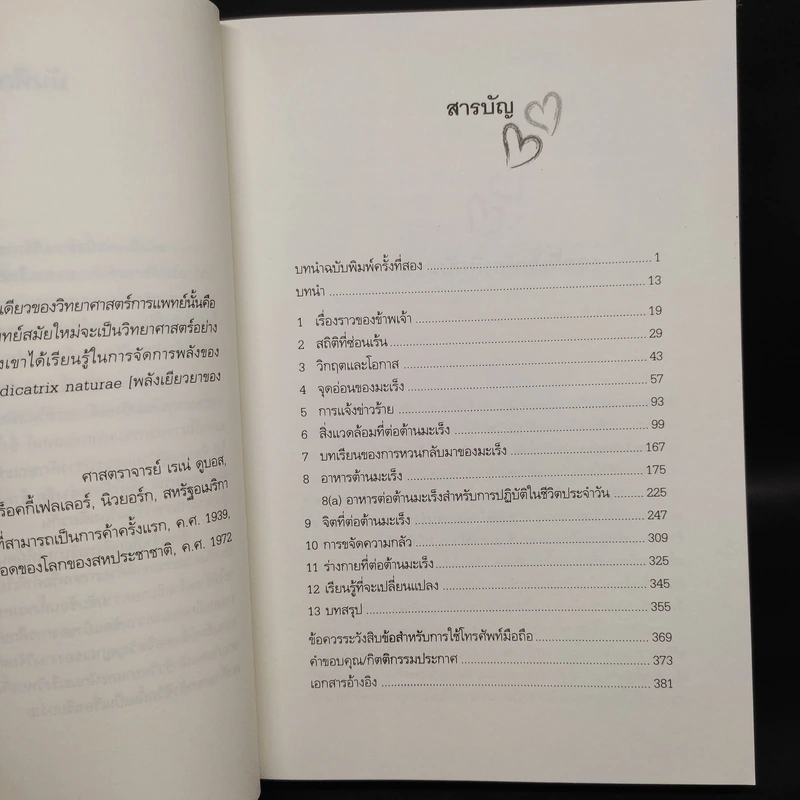 เดียวของวิทยาศาสตร์การแพทย์นั้นคือ
ทย์สมัยใหม่จะเป็นวิทยาศาสตร์อย่าง
งเขาได้เรียนรู้ในการจัดการพลังของ
dicatrix naturae [พลังเยียวยาของ
ศาสตราจารย์ เรเน่ ดูบอส,
ร็อคกี้เฟลเลอร์, นิวยอร์ก, สหรัฐอเมริกา
ที่สามารถเป็นการค้าครั้งแรก, ค.ศ. 1939,
อดของโลกของสหประชาชาติ, ค.ศ. 1972
สารบัญ
บทนำฉบับพิมพ์ครั้งที่สอง 1
บทนำ 13
1 เรื่องราวของข้าพเจ้า 19
2 สถิติที่ซ่อนเร้น 29
3 วิกฤตและโอกาส 43
4 จุดอ่อนของมะเร็ง 57
5 การแจ้งข่าวร้าย 93
6 สิ่งแวดล้อมที่ต่อต้านมะเร็ง 99
7 บทเรียนของการหวนกลับมาของมะเร็ง 167
8 อาหารต้านมะเร็ง 175
8(a) อาหารต่อต้านมะเร็งสำหรับการปฏิบัติในชีวิตประจำวัน 225
9 จิตที่ต่อต้านมะเร็ง 247
10 การขจัดความกลัว 309
11 ร่างกายที่ต่อต้านมะเร็ง 325
12 เรียนรู้ที่จะเปลี่ยนแปลง 345
13 บทสรุป 355
ข้อควรระวังสิบข้อสำหรับการใช้โทรศัพท์มือถือ 369
คำขอบคุณ/กิตติกรรมประกาศ 373
เอกสารอ้างอิง 381